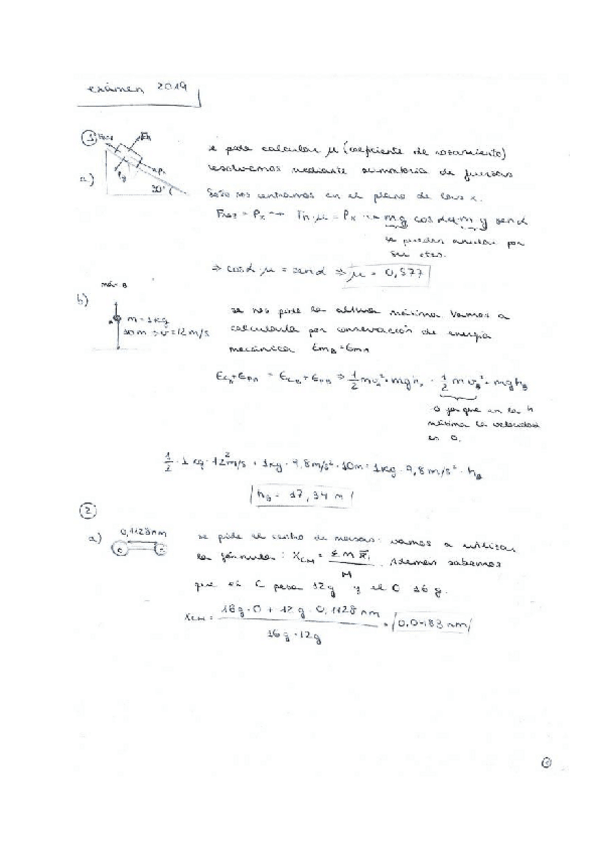 exámen 2019
① Froz Fn
a) Py Px 30°
* para calcular μ (coeficiente de rozamiento)
resolvemos mediante sumatoria de fuerzas
Solo nos centramos en el plano de las x.
Froz = Px → Fn·μ = Px → mg cos α·μ = m g sen α
se pueden anular por
ser ctes.
⇒ cos α μ = sen α ⇒ μ = 0,577
b) máx B
A m = 1kg
10m v = 12 m/s
se nos pide la altura máxima. Vamos a
calcularla por conservación de energía
mecánica EmB = EmA
½ m v² + mgh = ½ m vB² + mghB
0 ya que en la h
máxima la velocidad
es 0.
½ · 1 kg · 12² m/s + 1kg · 9,8 m/s² · 10m = 1kg · 9,8 m/s² · hB
hB = 17,34 m
②
a) 0,1128nm
se pide el centro de masas: vamos a utilizar
la fórmula: XCM = Σ m ri / M. Además sabemos
que el C pesa 12g y el O 16 g.
XCM = 16g · 0 + 12 g · 0,1128 nm / 16g + 12g = 0,0483 nm